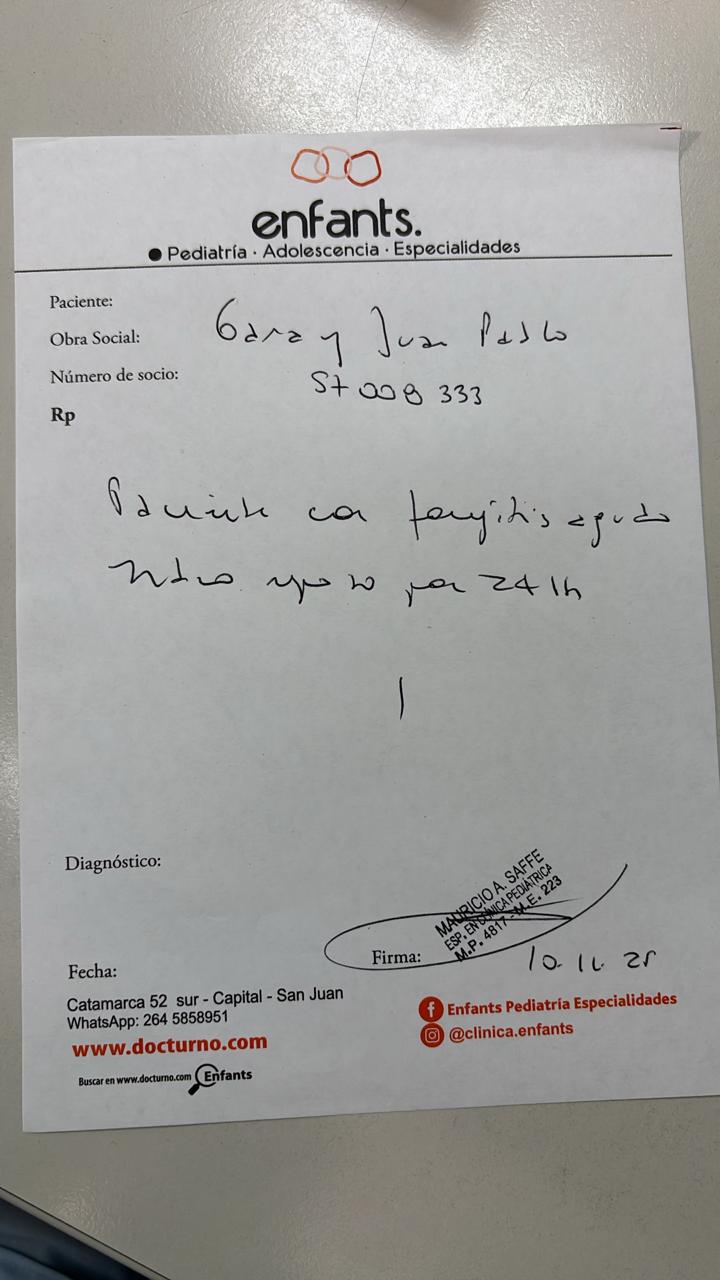 enfants.
Pediatría · Adolescencia · Especialidades
Paciente:
Obra Social: Garay Juan Pablo
Número de socio: 57 009 333
Rp
Paciente con faringitis aguda
reposo por 24 h
Diagnóstico:
MAURICIO A. SAFFE
ESP. EN CLÍNICA PEDIÁTRICA
M.P. 4817 - M.E. 223
Firma:
10 11 25
Fecha:
Catamarca 52 sur - Capital - San Juan
WhatsApp: 264 5858951
www.docturno.com
Buscar en www.docturno.com Enfants
Enfants Pediatría Especialidades
@clinica.enfants